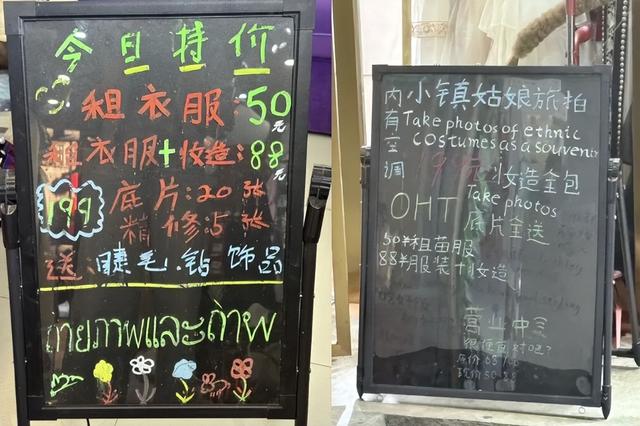 今旦特价
租衣服:50元
租衣服+妆造:88元
199 底片:20张
精修:5张
送、睫毛、钻 饰品
ถ่ายภาพและถ่าพ
内有空调
小镇姑娘旅拍
Take photos of ethnic
costumes as a souvenir
199元妆造全包
OHT Take photos
底片全送
50¥租苗服
88¥服装+妆造
营业中
很便宜对吧?